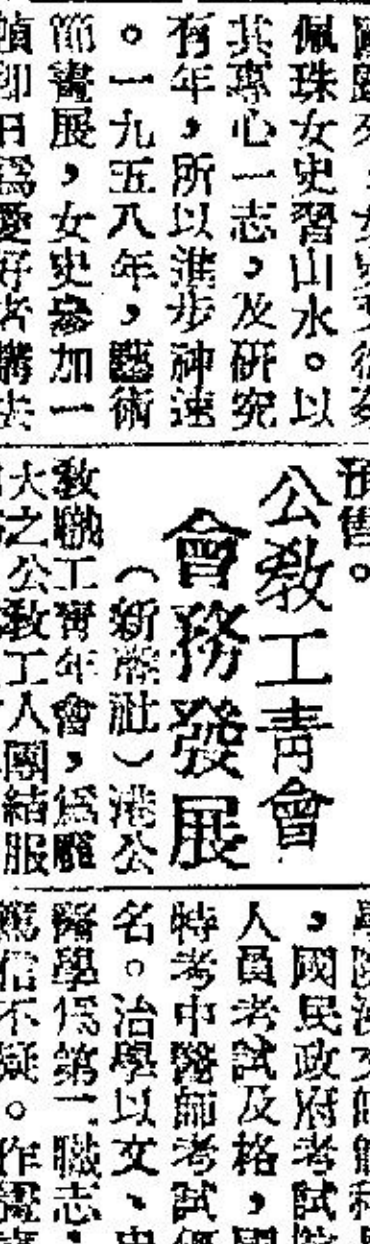 佩珠女史習山水。以
其專心一志，及研究
有年，所以進步神速
。一九五八年，藝術
節畫展，女史參加一
幀即日爲愛好者購去
預售。
公教工青會
會務發展
（新潮社）港公
教職工青年會，爲龐
大之公教工人團結服
，國民政府考試院
人員考試及格，
特考中醫師考試
名。治學以文、史
醫學爲第二職志，
篤信不疑。作